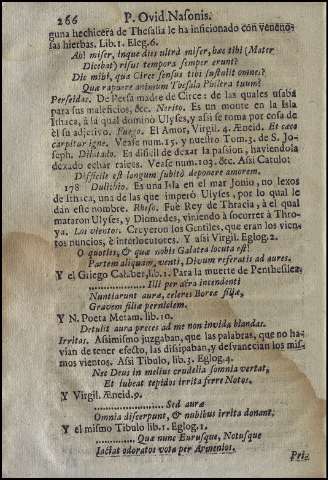 266 P. Ovid. Nasonis.
guna hechicera de Thesalia le ha inficionado con veneno-
sas hierbas. Lib. 1. Eleg. 6.
Ah! miser, inque dies ultrà miser, hæc tibi (Mater
Dicebat) risus tempora semper erunt?
Dic mihi, quæ Circe sensus tibi sustulit omnes?
Quæ rapuere animum Thesala Philtra tuum?
Perseidas. De Persa madre de Circe: de las quales usaba
para sus maleficios, &c. Nerito. Es un monte en la Isla
Ithaca, à la qual dominò Ulyses, y asi se toma por cosa de
èl su adjetivo. Fuego. El Amor, Virgil. 4. Æneid. Et cæco
carpitur igne. Vease num. 15. y nuestro Tom. 3. de S. Jo-
seph. Dilatado. Es dificil de dexar la passion, haviendola
dexado echar raices. Vease num. 103. &c. Asi Catulo:
Difficile est longum subitò deponere amorem.
178 Dulichio. Es una Isla en el mar Jonio, no lexos
de Ithaca, una de las que imperò Ulyses, por lo qual le
dàn este nombre. Rheso. Fuè Rey de Thracia, à el qual
mataron Ulyses, y Diomedes, viniendo à socorrer à Thro-
ya. Los vientos. Creyeron los Gentiles, que eran los vien-
tos nuncios, è interlocutores. Y asi Virgil. Eglog. 2.
O quoties, & quæ nobis Galatea locuta est!
Partem aliquam, venti, Divum referatis ad aures.
Y el Griego Calaber, lib. 1. Para la muerte de Penthesilea.
.................. Illi per aëra incendenti
Nuntiarunt aura, celeres Boreæ filiæ,
Gravem filiæ perniciem.
Y N. Poeta Metam. lib. 10.
Detulit aura preces ad me non invida blandas.
Irritas. Assimismo juzgaban, que las palabras, que no ha-
vian de tener efecto, las disipaban, y desvanecian los mis-
mos vientos. Asi Tibulo, lib. 3. Eglog. 4.
Nec Deus in melius crudelia somnia vertat,
Et iubeat tepidos irrita ferre Notos.
Y Virgil. Æneid. 9.
.................. Sed auræ
Omnia discerpunt, & nubibus irrita donant.
Y el mismo Tibulo lib. 1. Eglog. 1.
.......... Quæ nunc Eurusque, Notusque
Iactat odoratos vota per Armenios.
Pri-